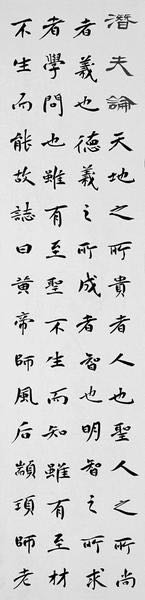 潛夫論天地之所貴者人也聖人之所尚
者義也德義之所成者智也明智之所求
者學問也雖有至聖不生而知雖有至材
不生而能故誌曰黃帝師風后顓頊師老